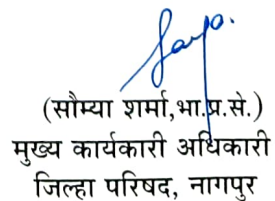 (सौम्या शर्मा,भा.प्र.से.)
मुख्य कार्यकारी अधिकारी
जिल्हा परिषद, नागपुर